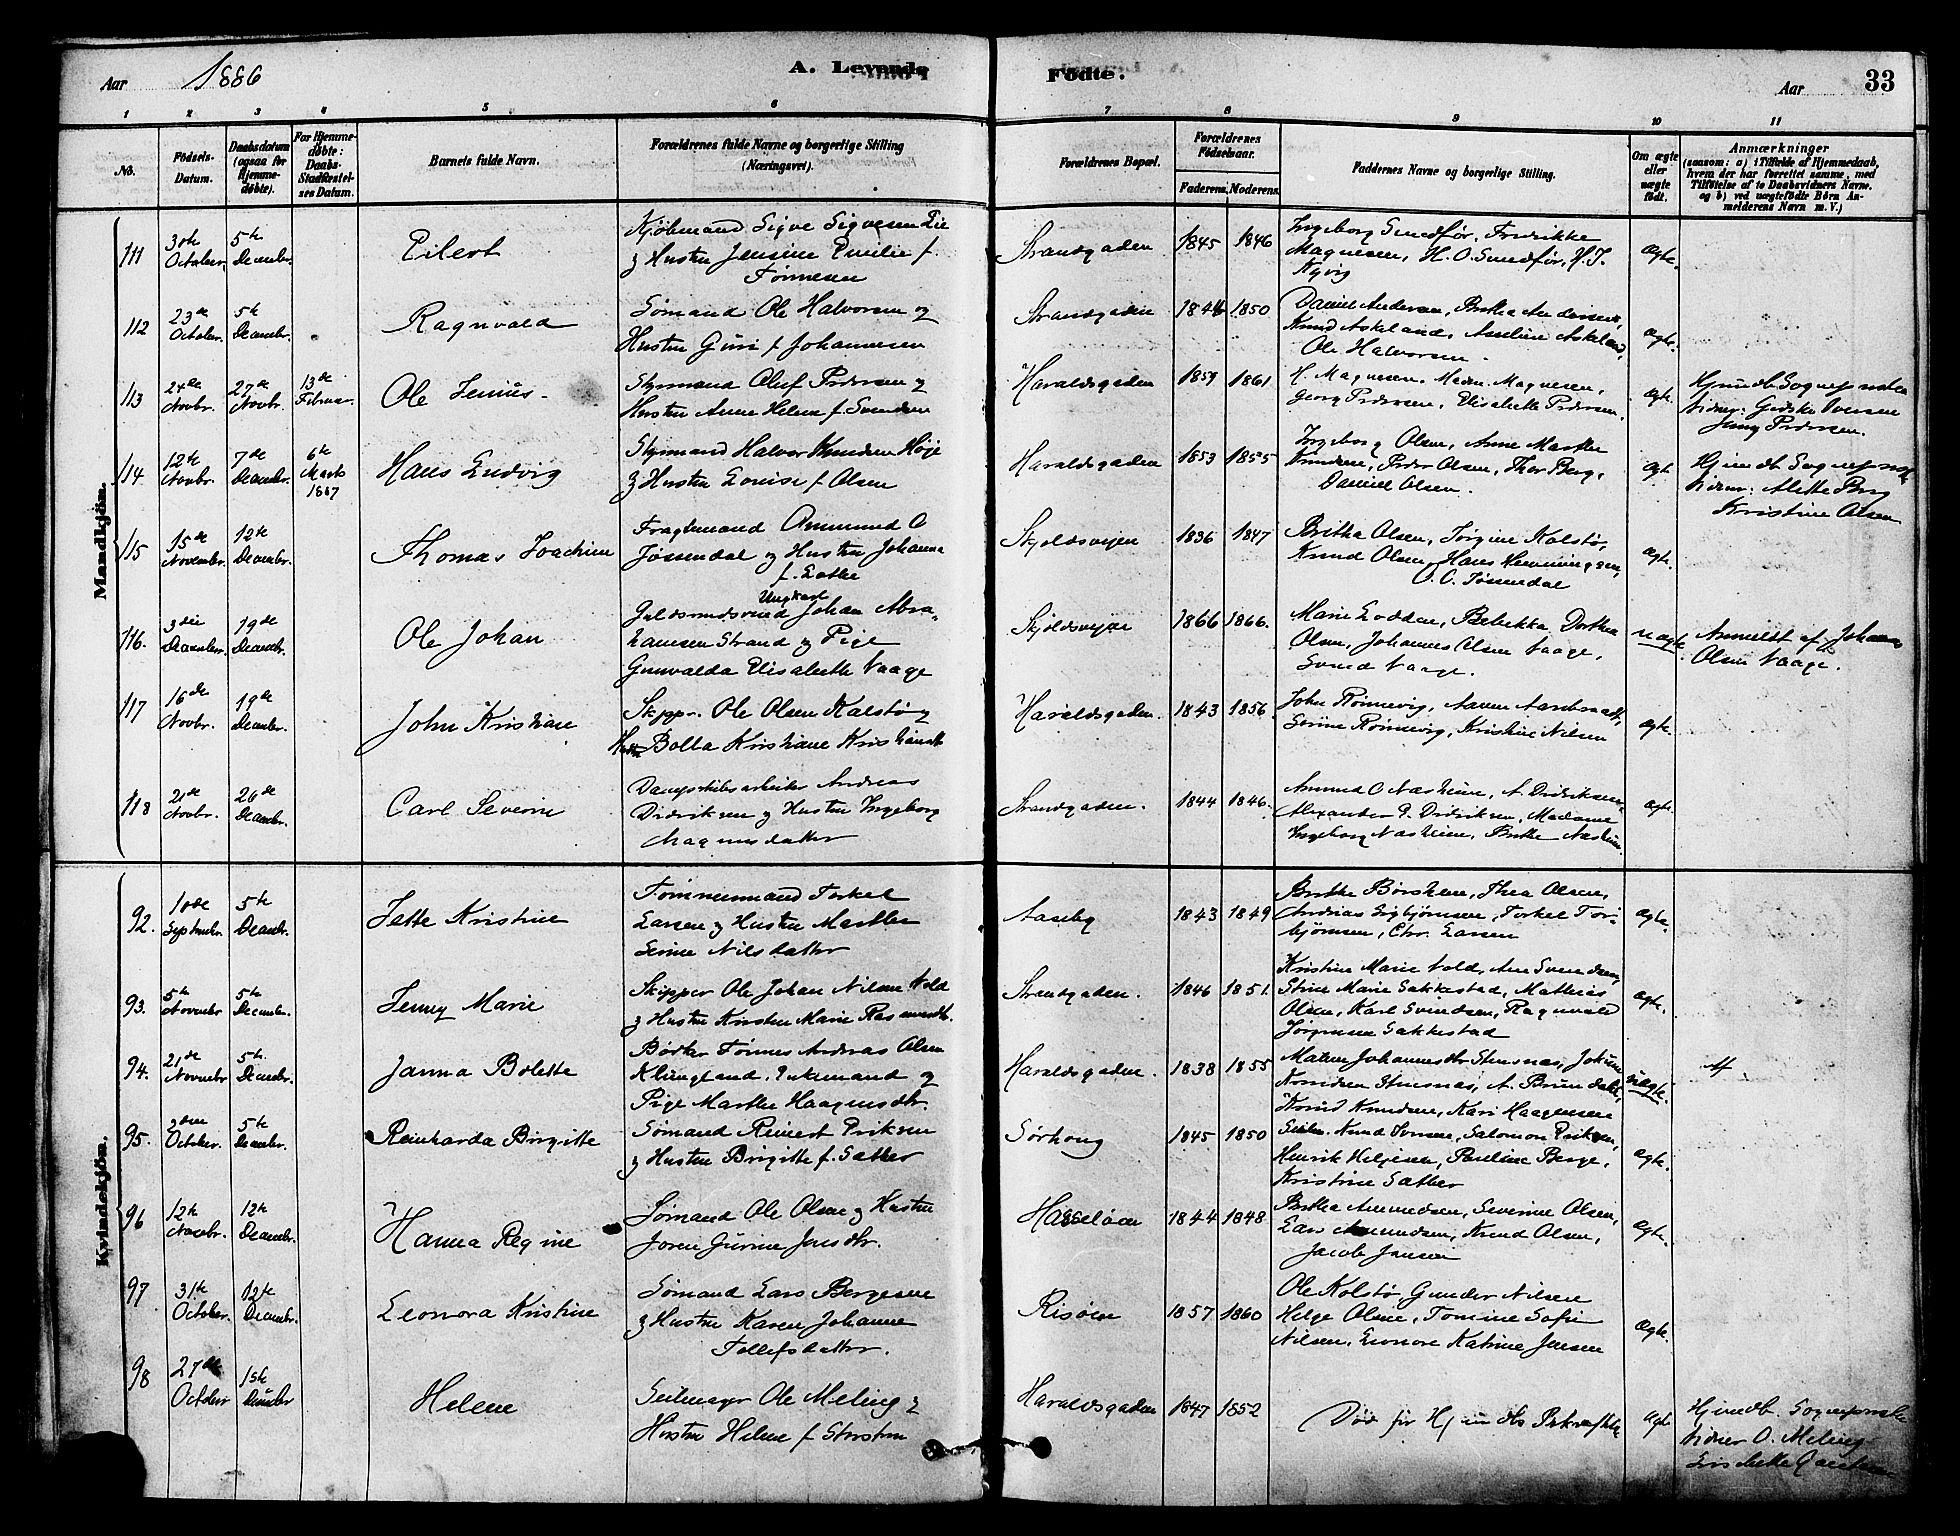 Aar 1886
A. Levende
Födte.
Aar
33
1 2 3 4 5 6 7 8 9 10 11
No.
Födsels-
Datum.
Daabsdatum
(ogsaa for
Hjemme-
døbte).
For Hjemme-
døbte:
Daabs-
Stadfæstel-
ses Datum.
Barnets fulde Navn.
Forældrenes fulde Navne og borgerlige Stilling
(Næringsvei).
Forældrenes Bopæl.
Forældrenes
Födselsaar.
Faderens. Moderens.
Faddernes Navne og borgerlige Stilling.
Om ægte
eller
uægte
født.
Anmærkninger
(saasom: a) i Tilfælde af Hjemmedaab,
hvem der har forrettet samme, med
Tilføielse af to Daabsvidners Navne,
og b) ved uægtefødte Börn An-
melderens Navn m. V.)
Mandkjön.
111
30te October
5te December.
Eilert
Kjöbmand Sigve Sigvesen Lie
& Hustru Jensine Emilie f.
Tönnesen
Strandgaden
1845
1846
Ingeborg Smedför, Fredrikke
Magnesen, H. O. Smedför, H. J.
ægte.
112
23de Octobr.
5te Decembr.
Ragnvald
Sömand Ole Halvorsen og
Hustru Guri f Johannesen
Strandgaden
1846
1850
Daniel Andersen, Britha Andersen,
Knud Askeland, Asseline Askeland,
Ole Halvorsen.
ægte.
113
24de Novbr.
27de Novbr.
13de Februar
Ole Jenius
Styrmand Oluf Pedersen og
Hustru Anne Helene f. Svendsen
Haraldsgaden
1859
1861
H. Magnesen. Maden. Magnesen,
Georg Pedersen, Elisabeth Pedersen.
ægte.
Hjemdb. Sognepræsten
Vidner: Gidske Iversen
Jenny Pedersen.
114
12te Novbr.
7de Decembr.
6te Marts 1887
Hans Ludvig
Styrmand Halvor Knudsen Höje
& Hustru Louise f Olsen
Haraldsgaden
1853
1855
Ingeborg Olsen, Anne Marthe
Knudsen, Peder Olsen, Thor Berg,
Daniel Olsen.
ægt.
Hjemdb. Sognepræst
Vidner: Alette Berg
Kristine Olsen
115
15de November
12te Decembr.
Thomas Joachim
Fragtemand Ammund O
Jössendal og Hustru Johanna
f. Lothe
Skjoldsvejen
1836
1847
Britha Olsen, Jörgine Kolstö,
Knud Olsen, Hans Henningsen,
O. O. Jössendal
ægte.
116.
3die Decembr.
19de Decembr.
Ole Johan
Ungkarl
Guldsmedsvend Johan Abra-
hamsen Strand og Pige
Gunvalda Elisabeth Vaage
Skjoldsvejen
1866
1866.
Marie Lodden, Rebekka Dorthea
Olsen, Johannes Olsen Vaage,
Svend Vaage.
uægte.
Anmeldt af Johannes
Olsen Vaage.
117
16de Novbr.
19de Decembr.
John Kristian
Skippr. Ole Olsen Kalstö og
Hust. Bolla Kristiane Kristiansdtr
Haraldsgaden.
1843
1856.
John Rönnevig, Aanen Aanbsnadt,
Serine Rönnevig, Kristine Nilsen
ægte.
118
21de Novbr.
26de Decembr.
Carl Severin
Dampskibsarbeider Andreas
Didriksen og Hustru Ingeborg
Magnusdatter
Strandgaden.
1844
1846.
Ammund O Næsheim, A. Didriksen,
Alexander P. Didriksen, Madame
Ingeborg Næsheim, Brithe Næsheim
ægte.
Kvindekjön.
92.
10de Septembr.
5te Decembr.
Jette Kristine
Tömmermand Torkel
Larsen og Hustru Marthe
Serine Nilsdatter
Aaseby
1843
1849
Brithe Börsheim, Thea Olsen,
Andreas Sigbjörnsen, Torkel Tor-
björnsen, Chr. Larsen
ægte.
93.
5te November
5te December.
Jenny Marie
Skipper Ole Johan Nilsen Vold
og Hustru Kirsten Marie Rasmusdtr.
Strandgaden.
1846
1851.
Kristine Marie Vold, Ane Svendsen,
Stine Marie Sakkestad, Mathias
Olsen, Karl Svendsen, Ragnvald
Jörgensen Sakkestad
ægte.
94.
21de November
5te Decembr.
Janna Bolette
Bödker Tönnes Andreas Olsen
Klungland, Enkemand og
Pige Marthe Haagensdtr.
Haraldsgaden.
1838
1855
Malene Johannesdtr Stensnæs, Jokum
Knudsen Stensnæs, A. Brundahl,
Knud Knudsen, Kari Haagensen
uægte.
95.
2den October
5te Decembr.
Reinharda Birgitte
Sömand Reinert Eriksen
& Hustru Brigitte f. Sæther
Sörhoug
1845
1850
Knud Iversen, Salomon Eriksen,
Henrik Helgesen, Pauline Berge,
Kristine Sæther
ægte.
96
12te Novebr.
12te Decembr.
Hanna Regine
Sömand Ole Olsen og Hustru
Joren Gurine Jensdtr.
Hasselöen
1844
1848
Britha Ammundsen, Severine Olsen,
Lars Ammundsen, Knud Olsen,
Jacob Jansen
ægte.
97
31te October.
12te Decembr.
Leonora Kristine
Sömand Lars Bergesen
& Hustru Karen Johanne
Tollefsdatter.
Risöen
1857
1860
Ole Kolstö, Gunder Nilsen
Helge Olsen, Tomine Sofie
Nilsen, Leonore Katrine Jensen
Ægte.
98
27de October
1ste Decembr
Helene
Seilmager Ole Meling &
Hustru Helene f Stensen
Haraldsgaden
1847
1852
Död för Hjemdbs Bekræftelse
ægte
Hjemdb. Sognepræsten
Vidner O. Meling